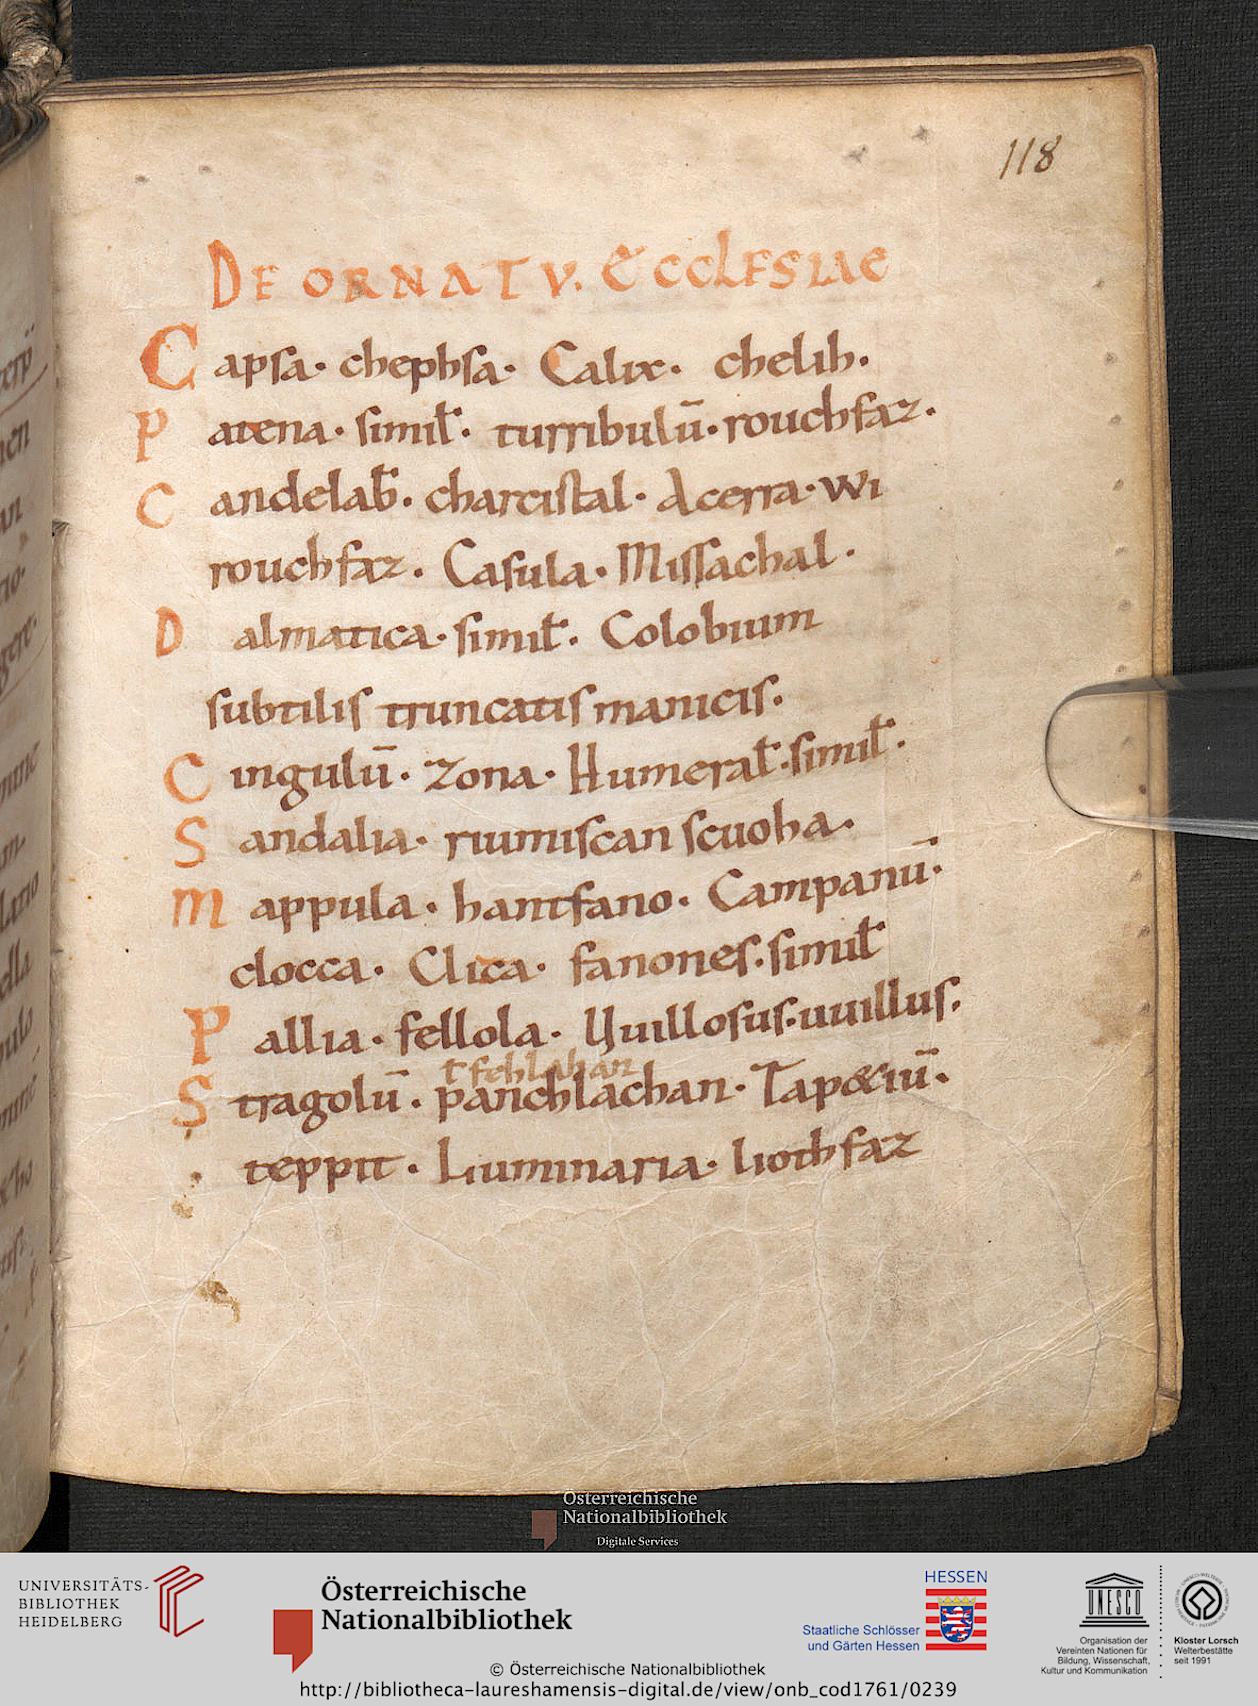 118
DE ORNATV. ECCLESIAE
Capsa· chephsa· Calix· chelih·
Patena· simil̄· turribulū· rouchfaz·
Candelab̄· charcistal· Acerra· wi
rouchfaz· Casula· Missachal·
Dalmatica· simil̄· Colobium
subtilis truncatis manicis·
Cingulū· zona· Humeral̄· simil̄·
Sandalia· riumiscan scuoha·
Mappula· hantfano· Campanū·
clocca· Clica· fanones· simil̄
Pallia· fellola· Uuillosus· uuillus·
ł fehlahan
Stragolū· panchlachan· Tap&iū·
teppit· Liuminaria· liothfaz
Österreichische
Nationalbibliothek
Digitale Services
UNIVERSITÄTS-
BIBLIOTHEK
HEIDELBERG
Österreichische
Nationalbibliothek
HESSEN
Staatliche Schlösser
und Gärten Hessen
UNESCO
Organisation der
Vereinten Nationen für
Bildung, Wissenschaft,
Kultur und Kommunikation
Kloster Lorsch
Welterbestätte
seit 1991
© Österreichische Nationalbibliothek
http://bibliotheca-laureshamensis-digital.de/view/onb_cod1761/0239